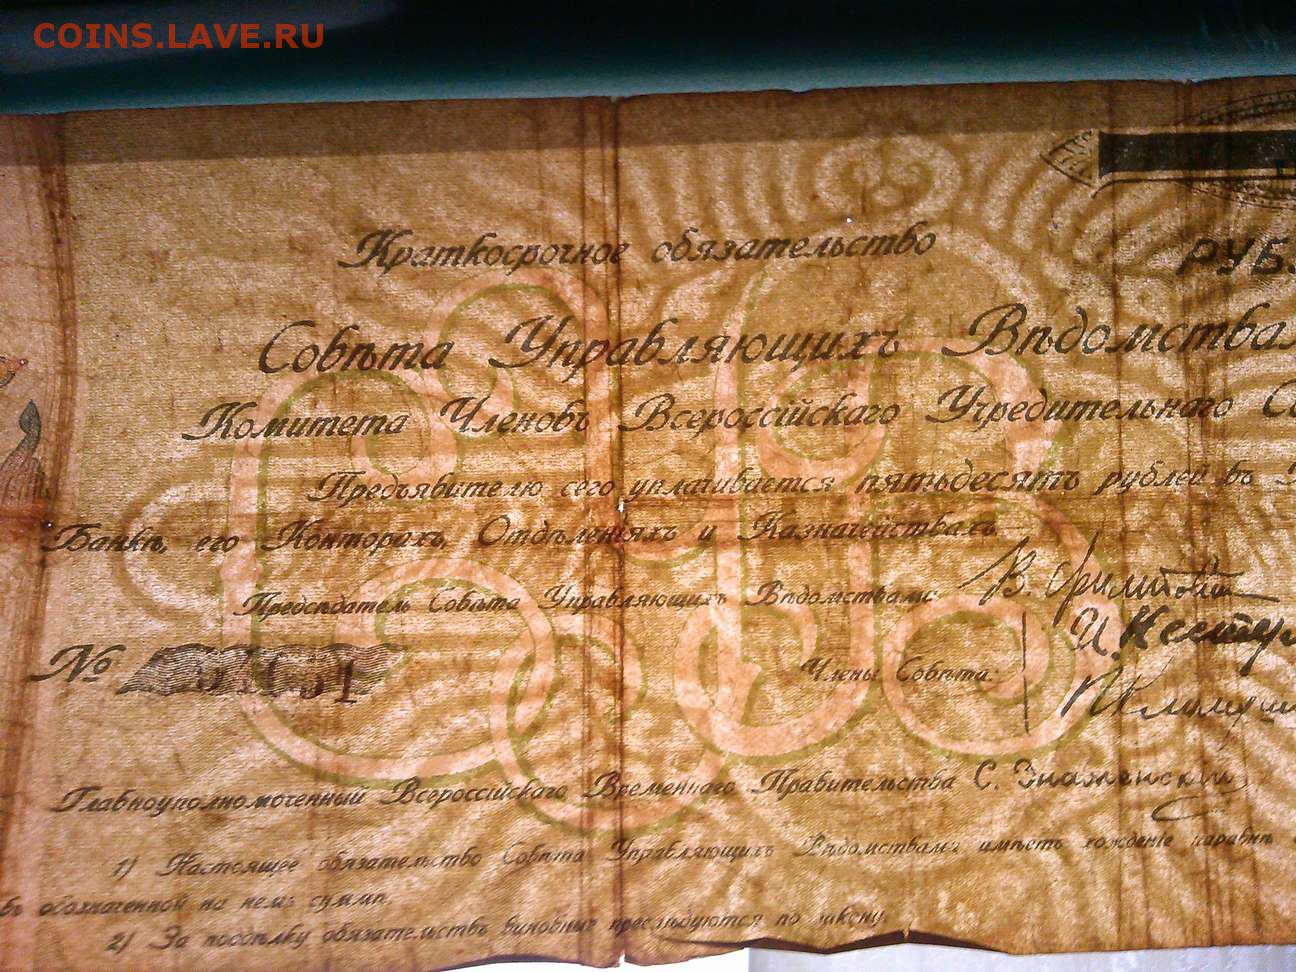 COINS.LAVE.RU
Краткосрочное обязательство
РУБ
Совѣта Управляющихъ Вѣдомства
Комитета Членовъ Всероссійскаго Учредительнаго С
Предъявителю сего уплачивается пятьдесятъ рублей въ
Банкѣ, его Конторахъ, Отдѣленіяхъ и Казначействахъ.
Предсѣдатель Совѣта Управляющихъ Вѣдомствами:
№
Члены Совѣта:
Главноуполномоченный Всероссійскаго Временнаго Правительства С. Знаменскій
1) Настоящее обязательство Совѣта Управляющихъ Вѣдомствами имѣетъ хожденіе наравнѣ
обозначенной на немъ суммѣ.
2) За поддѣлку обязательствъ виновные преслѣдуются по закону.